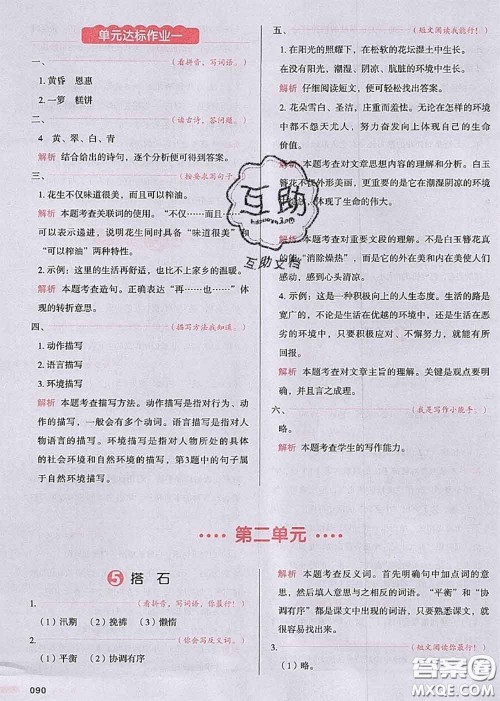 单元达标作业一
一、(看拼音，写词语。)
1. 黄昏 恩惠
2. 一箩 糕饼
二、(读古诗，答问题。)
4 黄、翠、白、青
解析 结合给出的诗句，逐个分析便可得到答案。
三、(按要求写句子。)
1. 花生不仅味道很美，而且可以榨油。
解析 本题考查关联词的使用。“不仅……而且……”
可以表示递进，说明花生同时具备“味道很美”和
“可以榨油”两种特性。
2. 示例：这里的生活再舒适，也比不上家乡的温暖。
解析 本题考查造句。正确表达“再……也……”表现
的转折意思。
四、(描写方法我知道。)
1. 动作描写
2. 语言描写
3. 环境描写
解析 本题考查描写方法。动作描写是指对行为、动
作的描写，一般会有多个动词。语言描写是指对人
物语言的描写。环境描写是指对人物所处的具体
的社会环境和自然环境的描写，第3题中的句子属
于自然环境描写。
五、(短文阅读我能行！)
1. 在阳光的照耀下，在松软的花坛湿土中生长。
没有阳光，潮湿、阴凉，肮脏低贱的环境中生长。
解析 仔细阅读短文，便可轻松找出答案。
2. 花朵雪白、圣洁，主要负重而显羞怯。无论在
解析 本题考查对文章思想内容的理解和分析。白玉
簪花不仅外形美丽，而且更重要的是它在潮湿阴凉的环境
体现了生命的伟大。
解析 本题考查对重要文段的理解。因为白玉簪花
能“消除燥热”，而且它的外在美和内在美使人
感动，感到心头清凉。
4. 示例：这是一种积极向上的人生态度。生活的路是
宽广的，不论生活在优越的环境中，还是生活在恶
劣的环境中，只要积极应对、不懈努力，就能有所
作为。
解析 本题考查对文章主旨的理解。关键是观点要明
确，并且言之成理。
六、(我是写作小能手。)
略。
解析 本题考查学生的写作能力。
第二单元
5 搭石
1. (看拼音，写词语，你最行！)
(1) 汛期 (2) 挽裤 (3) 懒惰
2. (你会写反义词。)
(1) 平衡 (2) 协调有序
解析 本题考查反义词。首先明确句中加点词的意
思，然后填入意思与之相反的词语。“平衡”和“协
调有序”都是课文中的词语，只要熟悉课文，就能
填出来。
3. (短文阅读你最行！)
(1) 略。
090
互助
互助文档
答案圈
MXQE.COM